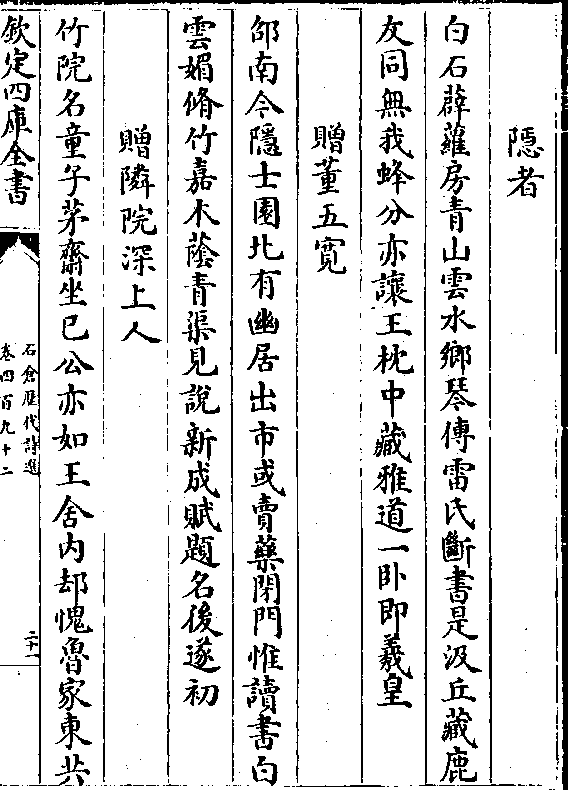 隠者
白石薜蘿房青山雲水鄉琴傳雷氏斷書是汲丘藏鹿
友同無我蜂分亦讓王枕中藏雅道一卧即羲皇
贈董五寛
邵南今隱士園北有幽居出市或賣藥閉門惟讀書白
雲媚脩竹嘉木蔭青渠見說新成賦題名後遂初
贈隣院深上人
竹院名童子茅齋坐已公亦如王舍内却愧魯家東共
欽定四庫全書
石倉歴代詩選
卷四百九十二
二十一